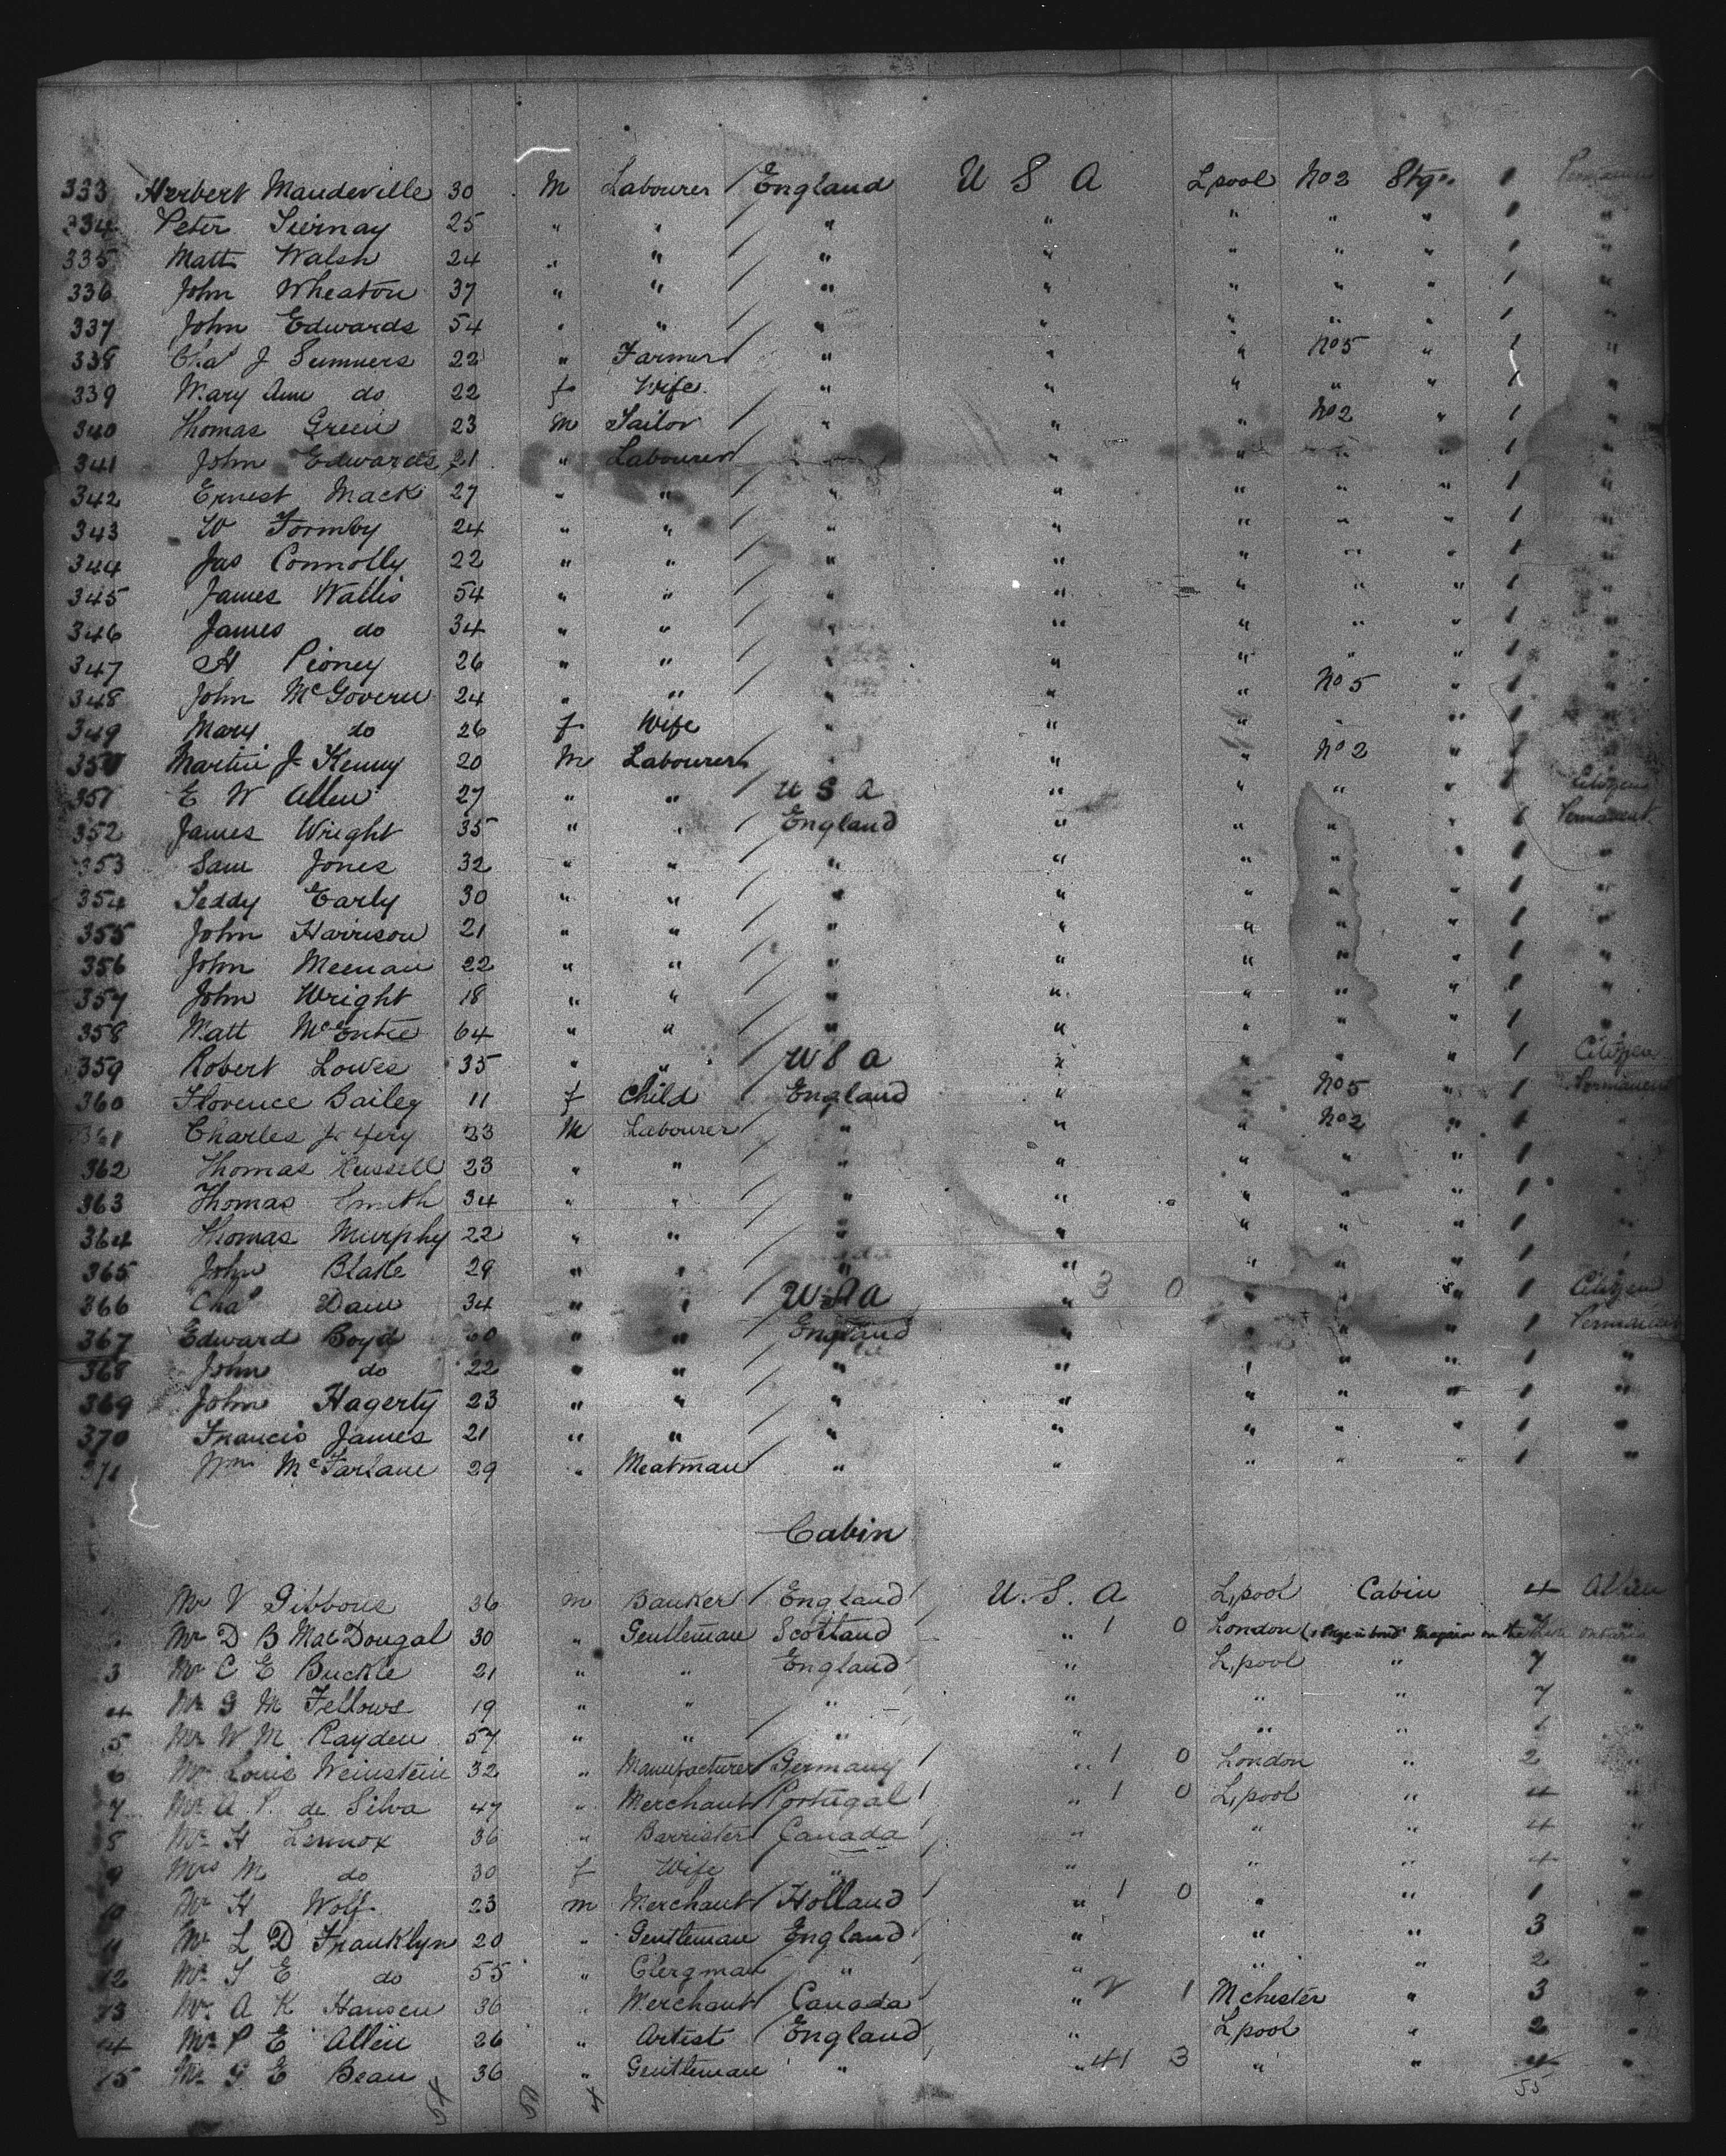 333 Herbert Mandeville 30 m Labourer England U S A Lpool No 2 Stge 1
334 Peter 25 " " " " " " " 1 "
335 Matt Walsh 24 " " " " " " " 1 "
336 John Wheaton 37 " " " " " " " 1 "
337 John Edwards 54 " " " " " " " 1 "
338 Chas J Sumners 22 " Farmer " " " No 5 " 1 "
339 Mary Ann do 22 f Wife " " " " " 1 "
340 Thomas Green 23 m Tailor " " " No 2 " 1 "
341 John Edwards 21 " Labourer " " " " " 1 "
342 Ernest Mack 27 " " " " " " " 1 "
343 W Formby 24 " " " " " " " 1 "
344 Jas Connolly 22 " " " " " " " 1 "
345 James Wallis 54 " " " " " " " 1 "
346 James do 34 " " " " " " " 1 "
347 H 26 " " " " " " " 1 "
348 John McGovern 24 " " " " " No 5 " 1 "
349 Mary do 26 f Wife " " " " " 1 "
350 Martin J Kenny 20 m Labourer " " " No 2 " 1 "
351 E W Allen 27 " " U S A " " " " 1 Citizen
352 James Wright 35 " " England " " " " 1 Permanent
353 Sam Jones 32 " " " " " " " 1 "
354 Teddy Early 30 " " " " " " " 1 "
355 John Harrison 21 " " " " " " " 1 "
356 John Meenan 22 " " " " " " " 1 "
357 John Wright 18 " " " " " " " 1 "
358 Matt McEntee 64 " " " " " " " 1 "
359 Robert Lowes 35 " " U S A " " " " 1 Citizen
360 Florence Bailey 11 f Child England " " No 5 " 1 Permanent
361 Charles 23 m Labourer " " " No 2 " 1 "
362 Thomas Russell 23 " " " " " " " 1 "
363 Thomas Smith 34 " " " " " " " 1 "
364 Thomas Murphy 22 " " " " " " " 1 "
365 John Blake 29 " " " " " " " 1 "
366 Chas Dam 34 " " U S A " 3 0 " " " 1 Citizen
367 Edward Boyd 60 " " England " " " " 1 Permanent
368 John do 22 " " " " " " " 1 "
369 John Hagerty 23 " " " " " " " 1 "
370 Francis James 21 " " " " " " " 1 "
371 Wm McFarlane 29 " Meatman " " " " " 1 "
Cabin
Mr V Gibbons 36 m Banker England U. S. A Lpool Cabin 4
Mr D B MacDougal 30 " Gentleman Scotland " 1 0 London
3 Mr C E Buckle 21 " " England " Lpool " 7 "
4 Mr G M Fellows 19 " " " " " " 7 "
5 Mr W M Rayden 57 " " " " " " "
6 Mr Louis Weinstein 32 " Manufacturer Germany " 1 0 London " 2 "
7 Mr A P. de Silva 47 " Merchant Portugal " 1 0 Lpool " 4 "
8 Mr H Lennox 36 " Barrister Canada " " " 4 "
9 Mrs M do 30 f Wife " " " " 4 "
10 Mr H Wolf 23 m Merchant Holland " 1 0 " " 1 "
11 Mr L D Franklyn 20 " Gentleman England " " " 3 "
12 Mr S E do 55 " Clergman " " " " 2 "
13 Mr A K Hansen 36 " Merchant Canada " 2 1 Mchester " 3 "
14 Mr P E Allen 26 " Artist England " Lpool " 2 "
15 Mr G E Bean 36 " Gentleman " " 41 3 " " 4 "
55